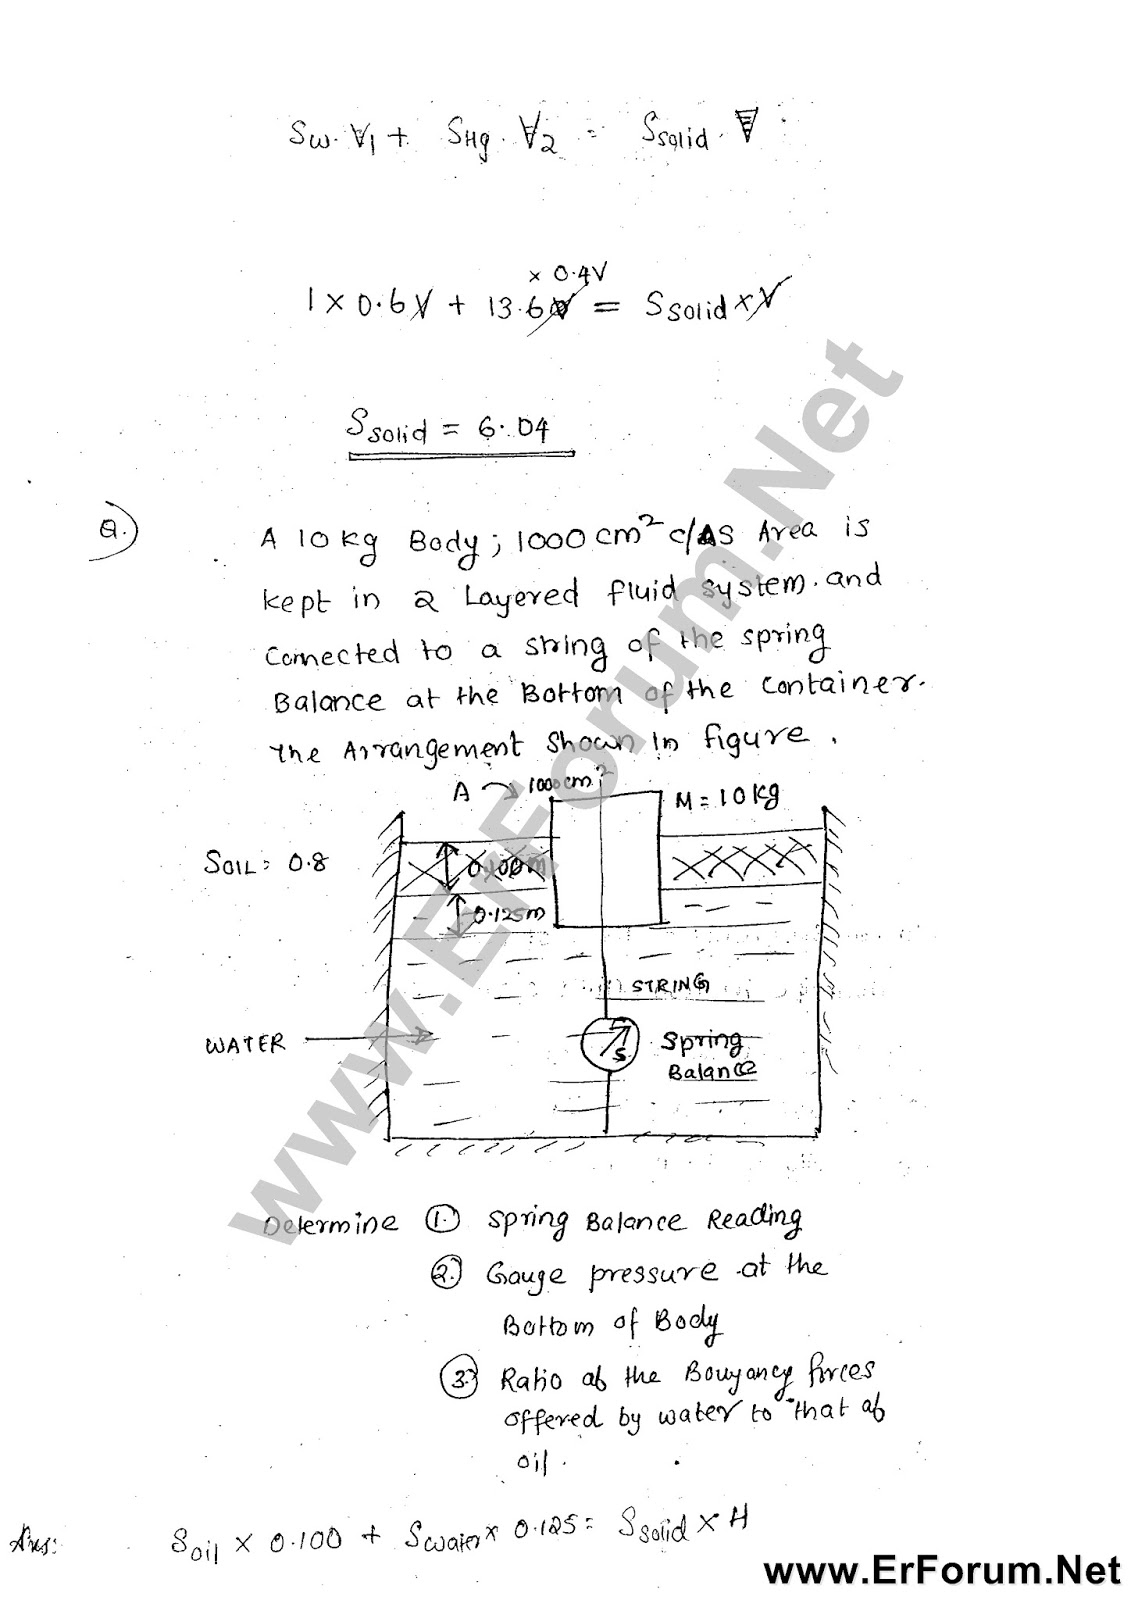 Sw. ∀1 + SHg . ∀2 = Ssolid . ∀
× 0.4V
1 × 0.6V + 13.6 = Ssolid × V
Ssolid = 6.04
Q.)
A 10 kg Body ; 1000 cm² c/s Area is
kept in 2 Layered fluid system. and
connected to a string of the spring
Balance at the Bottom of the container.
the Arrangement shown in figure .
A → 1000 cm²
M = 10 kg
SOIL = 0.8
0.100m
0.125m
STRING
WATER
S
Spring
Balance
Determine 1. Spring Balance Reading
2. Gauge pressure at the
Bottom of Body
3. Ratio of the Bouyancy forces
offered by water to that of
oil.
Ans: Soil × 0.100 + Swater × 0.125 = Ssolid × H
www.ErForum.Net
www.ErForum.Net